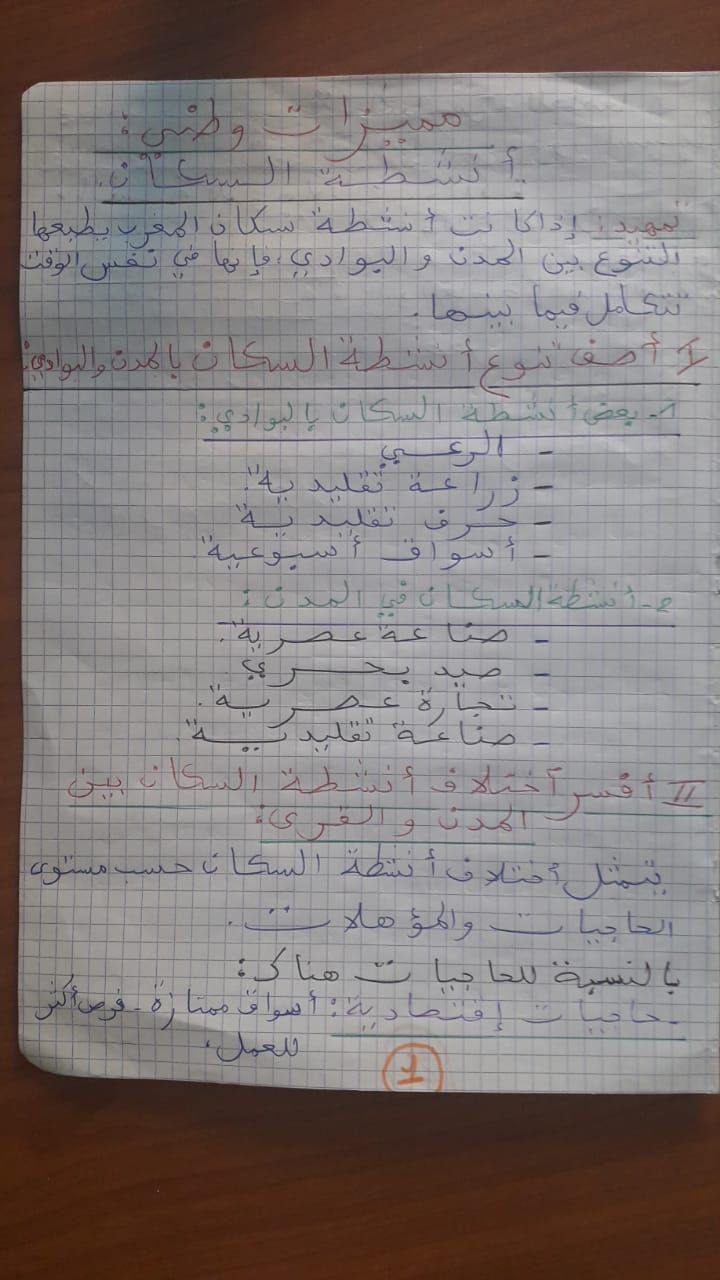 مميزات وطني:
أنشطة السكان.
تمهيد: إذا كانت أنشطة سكان المغرب يطبعها
التنوع بين المدن والبوادي، فإنها في نفس الوقت
تتكامل فيما بينها.
I أصف تنوع أنشطة السكان بالمدن والبوادي:
1- بعض أنشطة السكان بالبوادي:
- الرعي
- زراعة تقليدية.
- حرف تقليدية
- أسواق أسبوعية
2- أنشطة السكان في المدن:
- صناعة عصرية.
- صيد بحري.
- تجارة عصرية.
- صناعة تقليدية.
II أفسر آختلاف أنشطة السكان بين
المدن والقرى:
يتمثل أختلاف أنشطة السكان حسب مستوى
الحاجيات والمؤهلات.
بالنسبة للحاجيات هناك:
- حاجيات إقتصادية: أسواق ممتازة - فرص أكثر
للعمل.
1